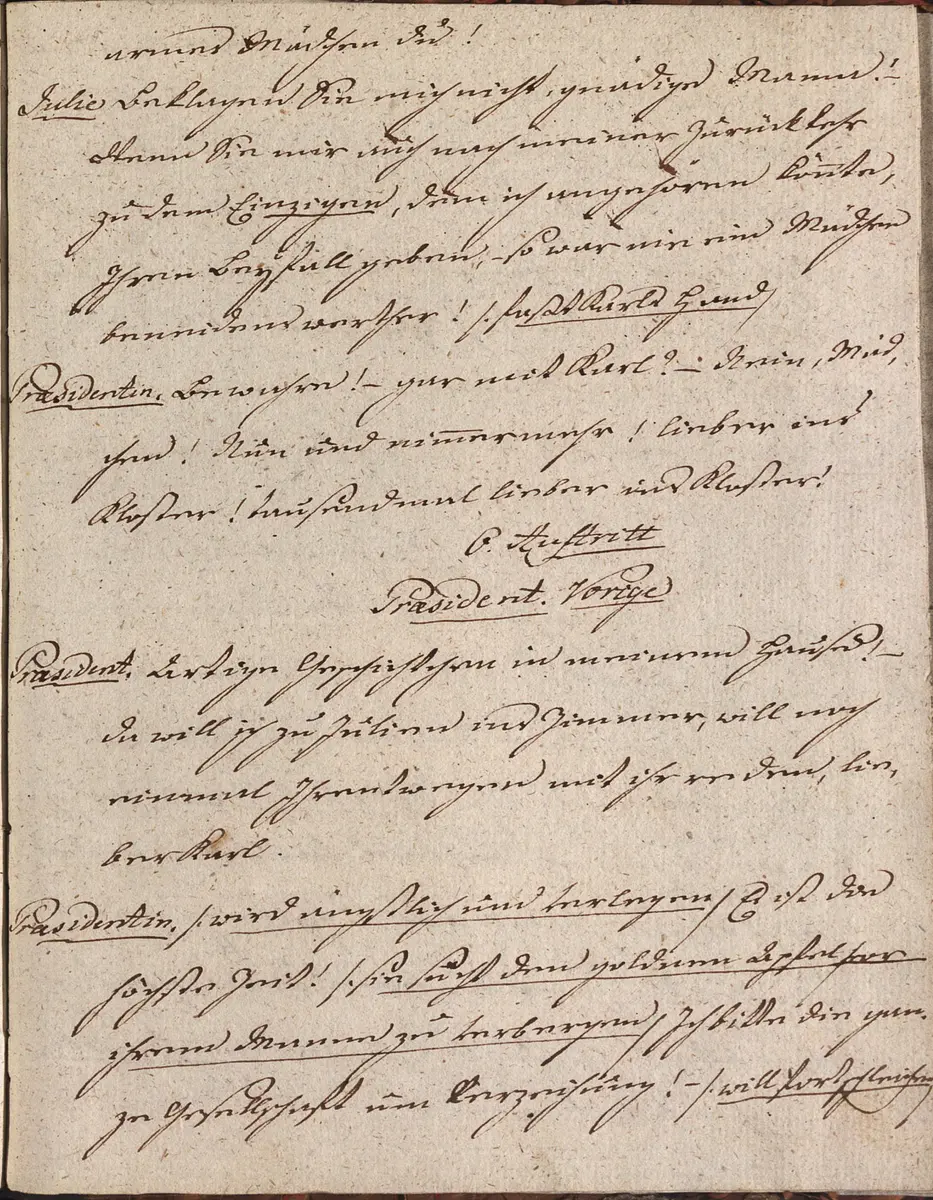 armes Mädchen du!
Julie Beklagen Sie mich nicht, gnädige Mama! –
Wenn Sie mir auch nach meiner Zurückkehr
zu dem Einzigen, dem ich angehören könnte,
Ihren Beyfall geben, – so war nie ein Mädchen
beneidenswerther! /: fasst Karls Hand/
Præsidentin. Bewahre! – gar mit Karl? – Nein, Mäd,
chen! Nun und nimmermehr! lieber ins
Kloster! tausendmal lieber ins Kloster!
6. Auftritt
Præsident. Vorige
Præsident. Artige Geschichtchen in meinem Hause! –
da will ich zu Julien ins Zimmer, will noch
einmal Ihrentwegen mit ihr reden, lie,
ber Karl.
Præsidentin. /: wird ängstlich und verlegen/ Es ist die
höchste Zeit! /: sie sucht den goldnen Apfel vor
ihrem Manne zu verbergen/ Ich bitte die gan,
ze Gesellschaft um Verzeihung! – /: will fortschleichen